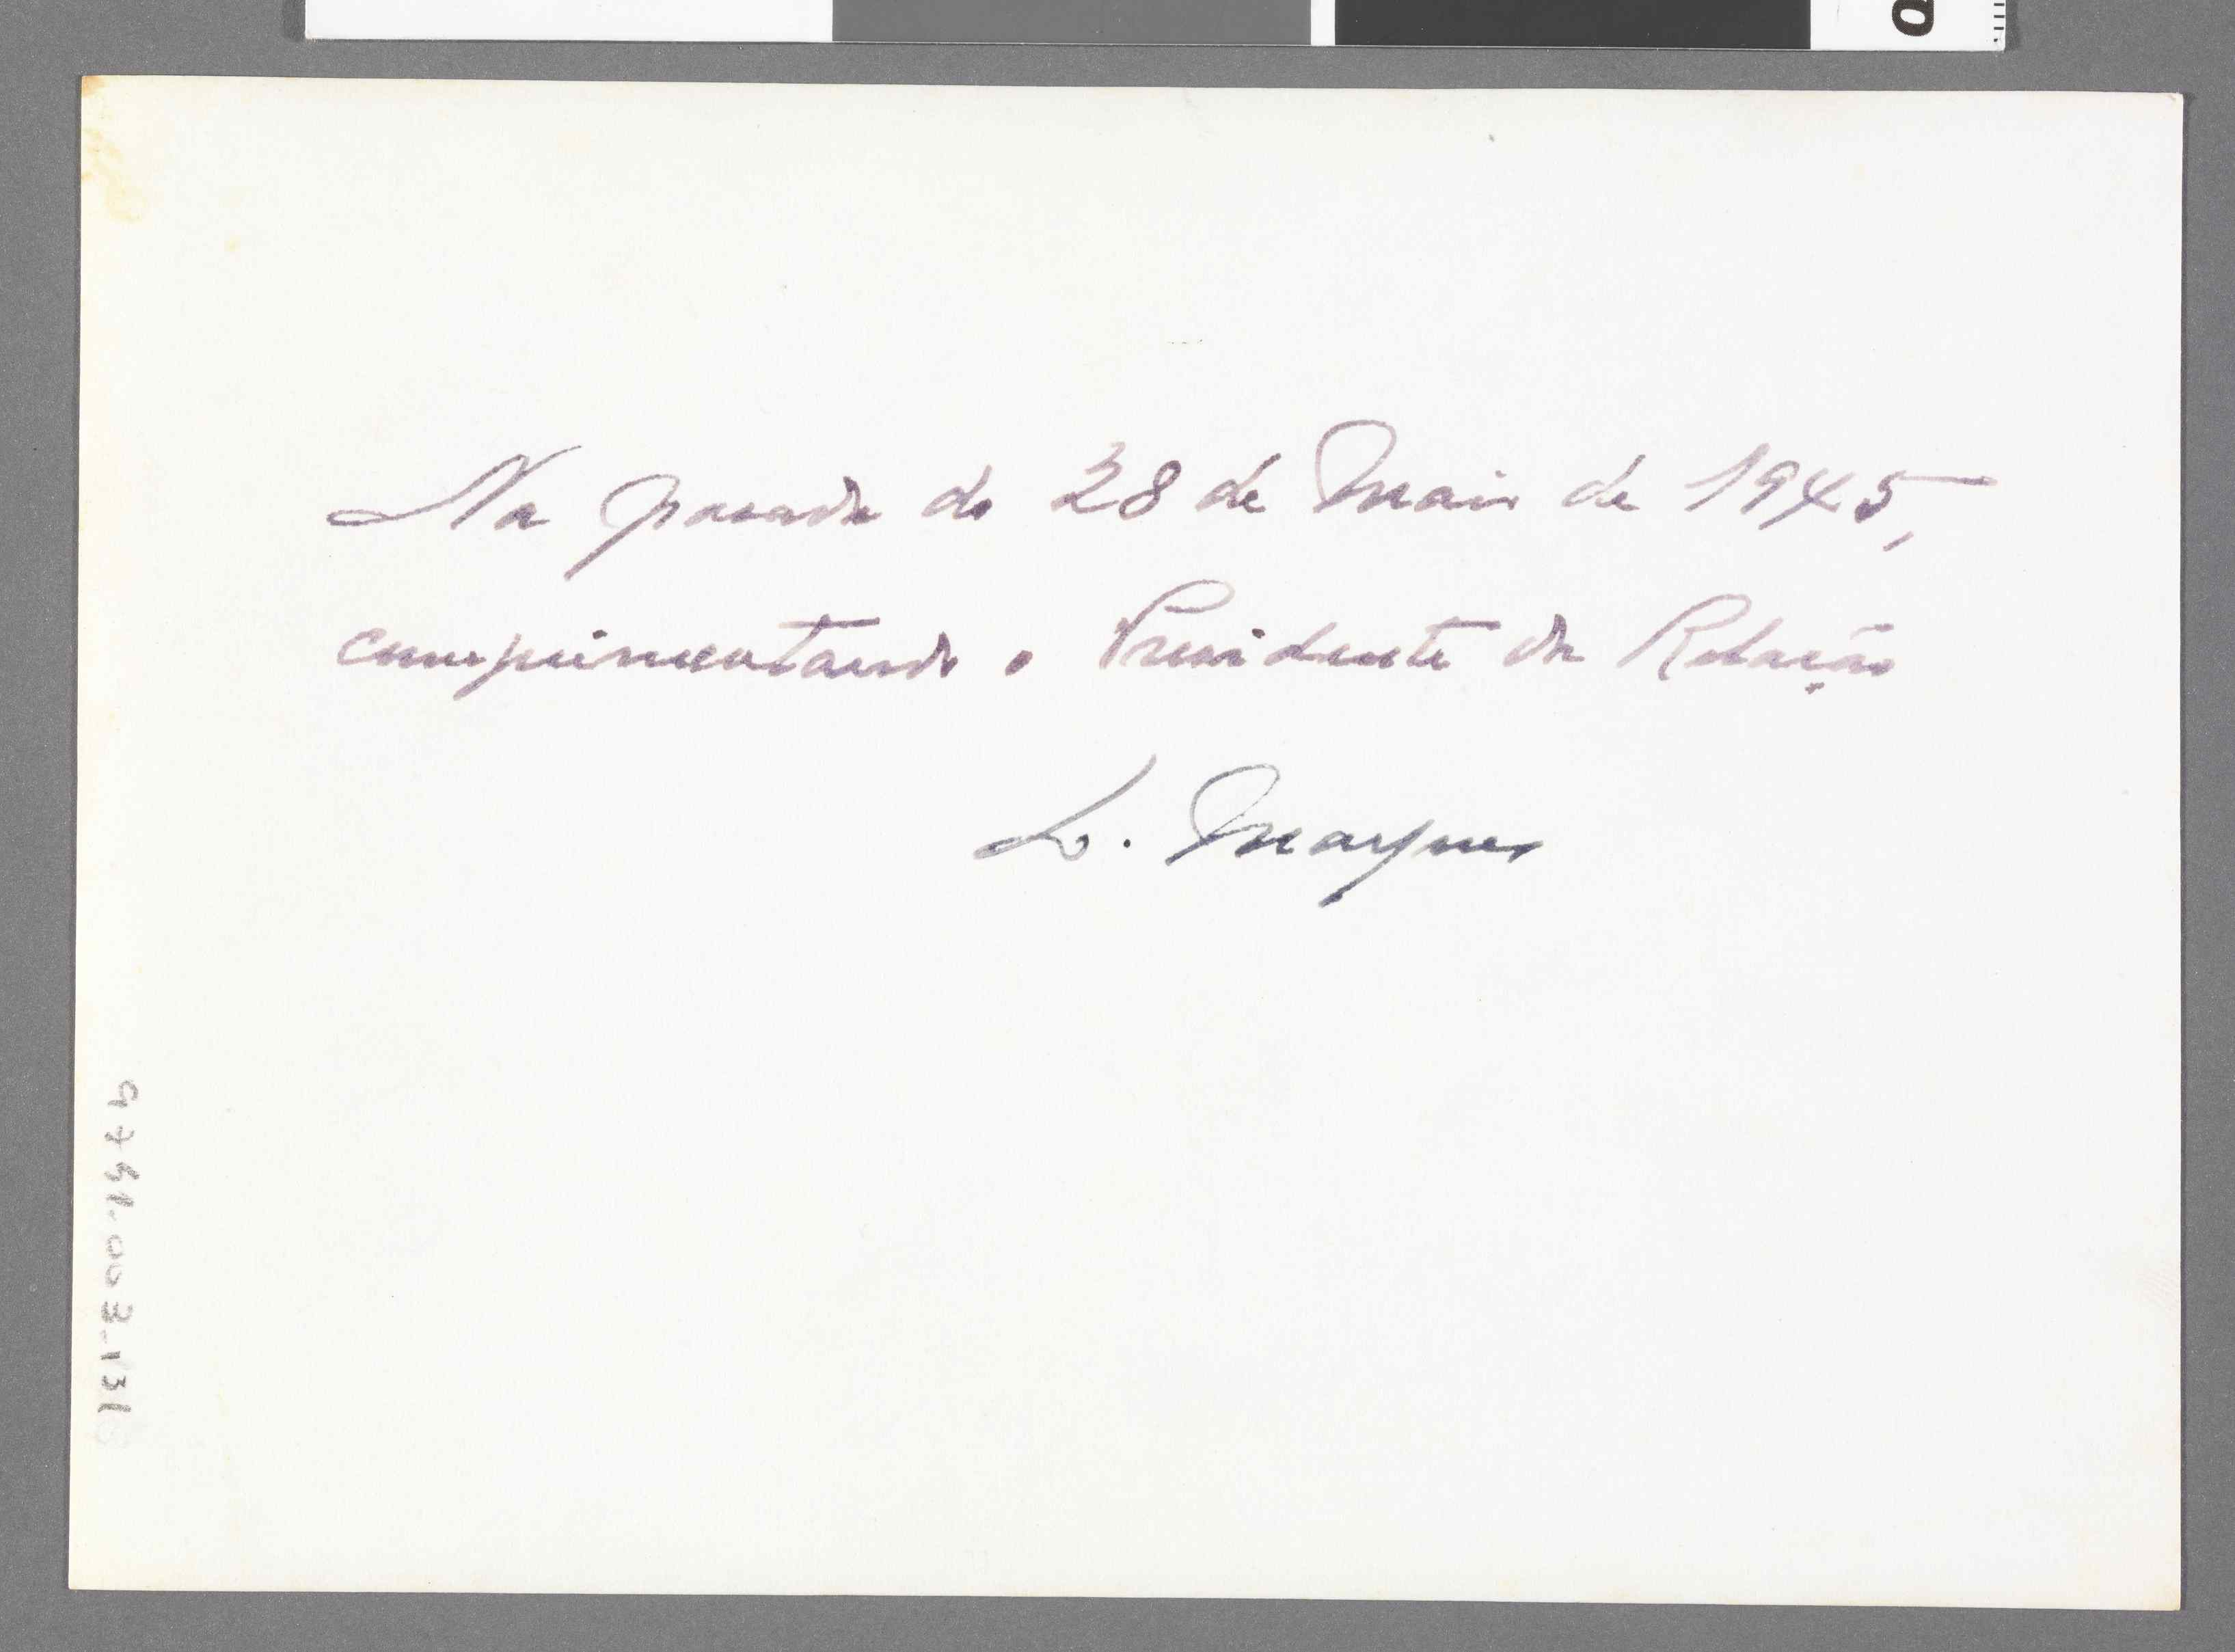 Na parada do 28 de Maio de 1945,
cumprimentando o Presidente da Relação
L. Marques
9751.003.131